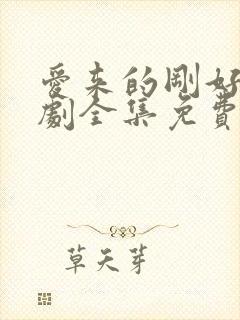 愛来的剛好
劇全集免費
草天芽